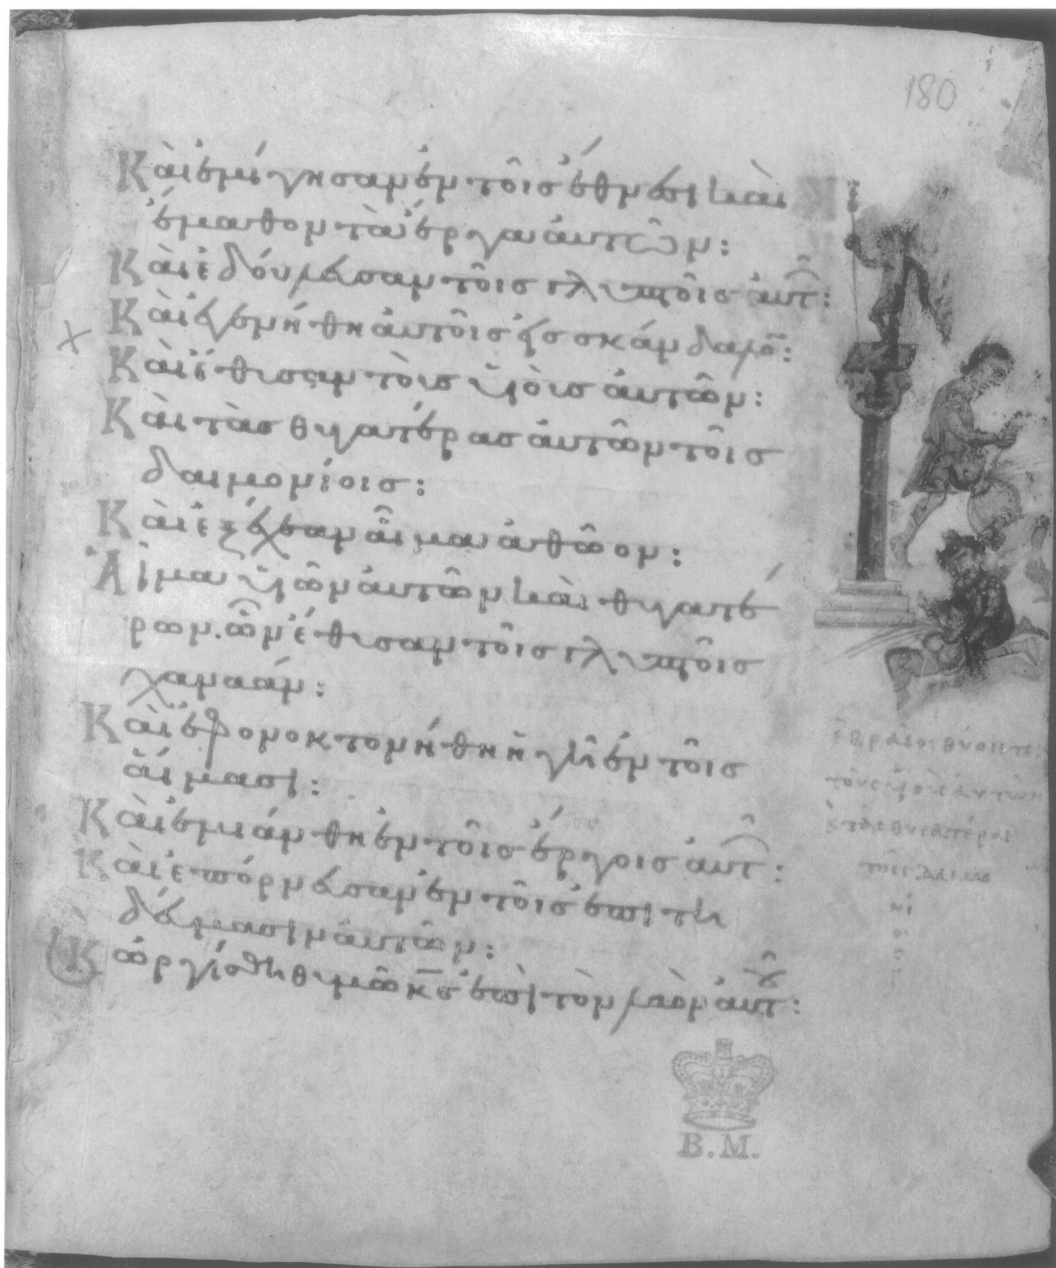 180
Καὶ ἐμίγησαν ἐν τοῖς ἔθνεσι καὶ
ἔμαθον τὰ ἔργα ἀυτῶν:
Καὶ ἐδούλευσαν τοῖς γλυπτοῖς ἀυτ:
Καὶ ἐγενήθη ἀυτοῖς εἰς σκάνδαλο:
Καὶ ἔθυσαν τοὺς ὑιοὺς ἀυτῶν:
Καὶ τὰς θυγατέρας ἀυτῶν τοῖς
δαιμονίοις:
Καὶ ἐξέχεαν αἷμα ἀθῶον:
Αἷμα ὑιῶν ἀυτῶν καὶ θυγατέ
ρων. ὧν ἔθυσαν τοῖς γλυπτοῖς
χαναάν:
Καὶ ἐφονοκτονήθη ἡ γῆ ἐν τοῖς
αἵμασι:
Καὶ ἐμιάνθη ἐν τοῖς ἔργοις ἀυτ:
Καὶ ἐπόρνευσαν ἐν τοῖς ἐπιτη
δεύμασιν ἀυτῶν:
Κ ὠργίσθη θυμῶ κς ἐπὶ τὸν λαὸν ἀυτ:
ἑβραῖοι θύοντες
τοὺς
τὰς θυγατέρας
τοῖς
B.M.